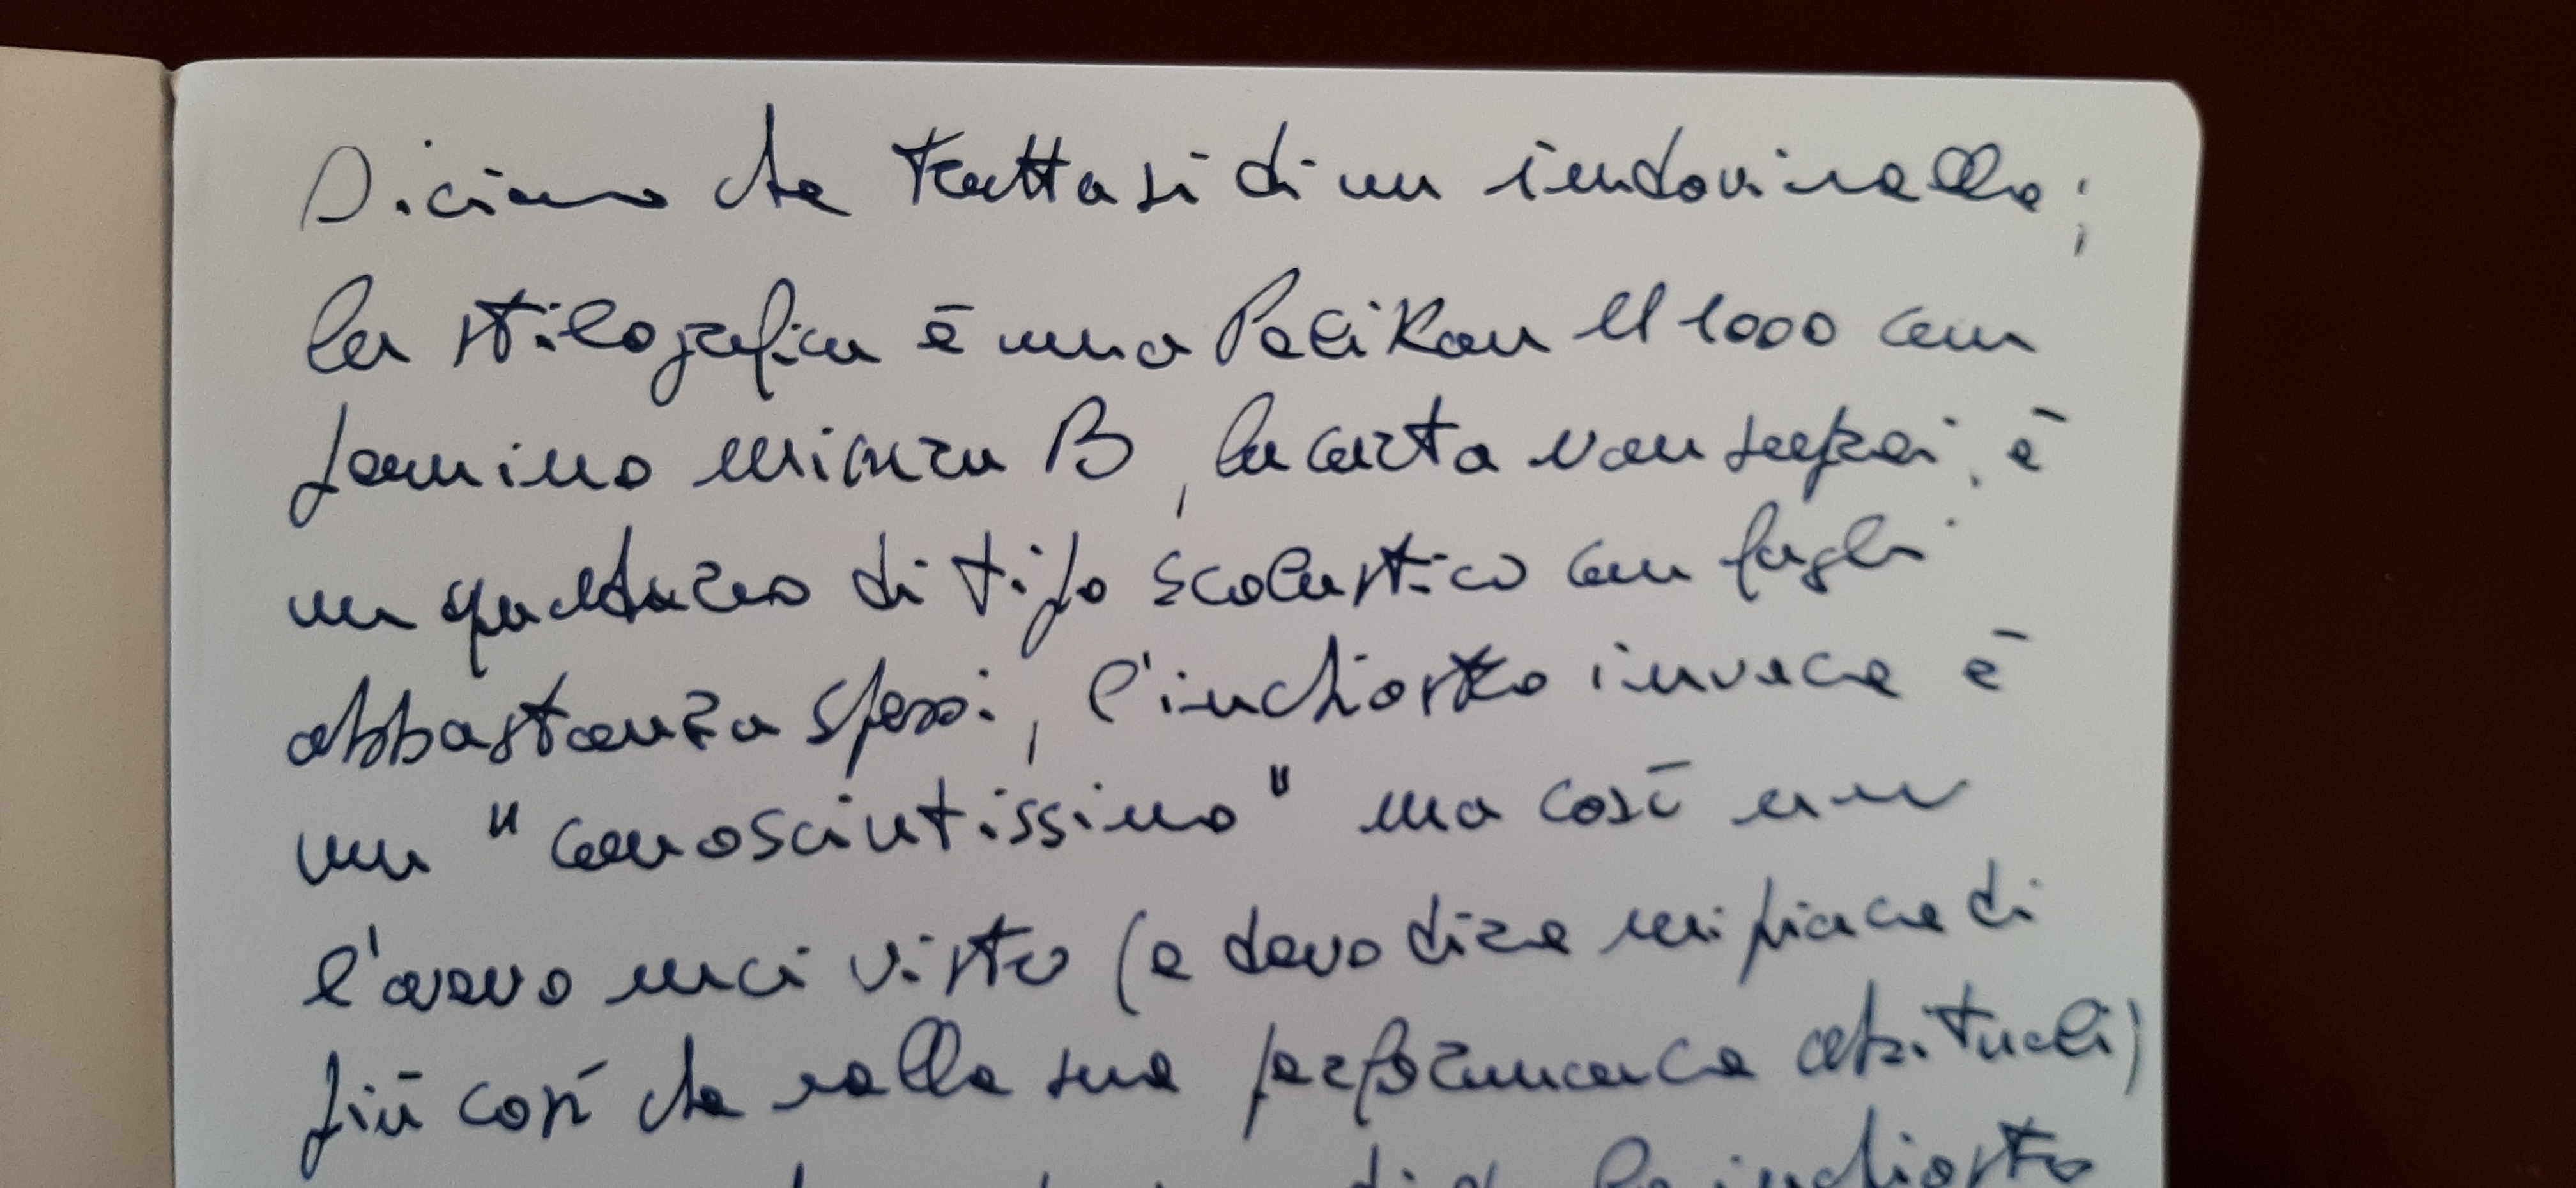 Diciamo che trattasi di un indovinello;
la stilografica è una Pelikan M1000 con
pennino misura B, la carta non saprei, è
un quaderno di tipo scolastico con fogli
abbastanza spessi, l'inchiostro invece è
un "conosciutissimo" ma così non
l'avevo mai visto (e devo dire mi piace di
più così che nella sua performance abituali)
l'inchiostro